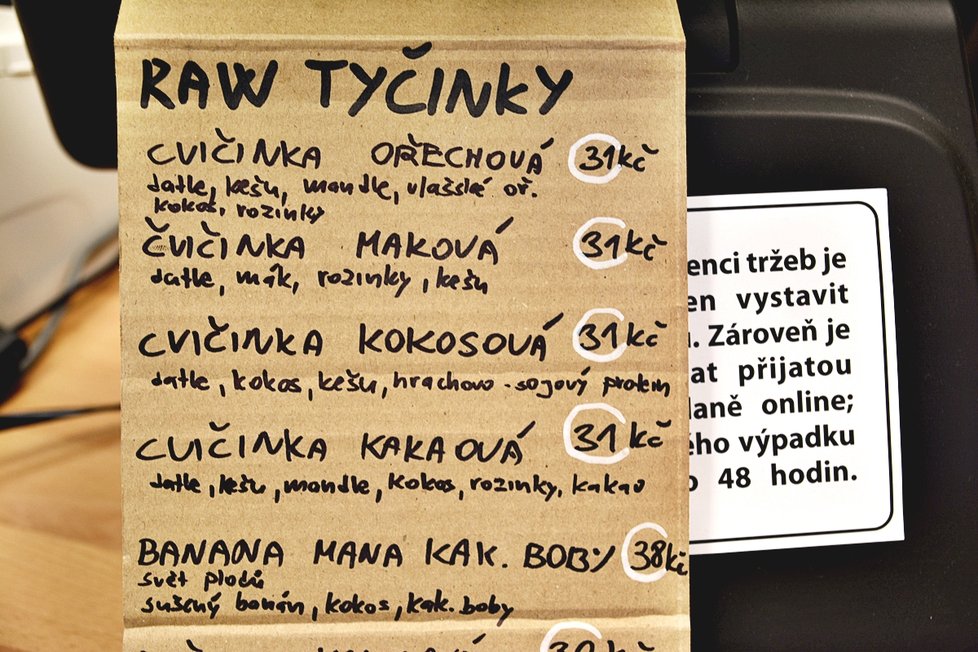 RAW TYČINKY
CVIČINKA OŘECHOVÁ 31kč
datle, kešu, mandle, vlašské oř.
kokos, rozinky
ČVIČINKA MAKOVÁ 31kč
datle, mák, rozinky, kešu
CVIČINKA KOKOSOVÁ 31kč
datle, kokos, kešu, hrachovo-sojový protein
CVIČINKA KAKAOVÁ 31kč
datle, kešu, mandle, kokos, rozinky, kakao
BANANA MANA KAK. BOBY 38kč
svět plodů
sušený banán, kokos, kak. boby
enci tržeb je
en vystavit
. Zároveň je
at přijatou
daně online;
ého výpadku
48 hodin.